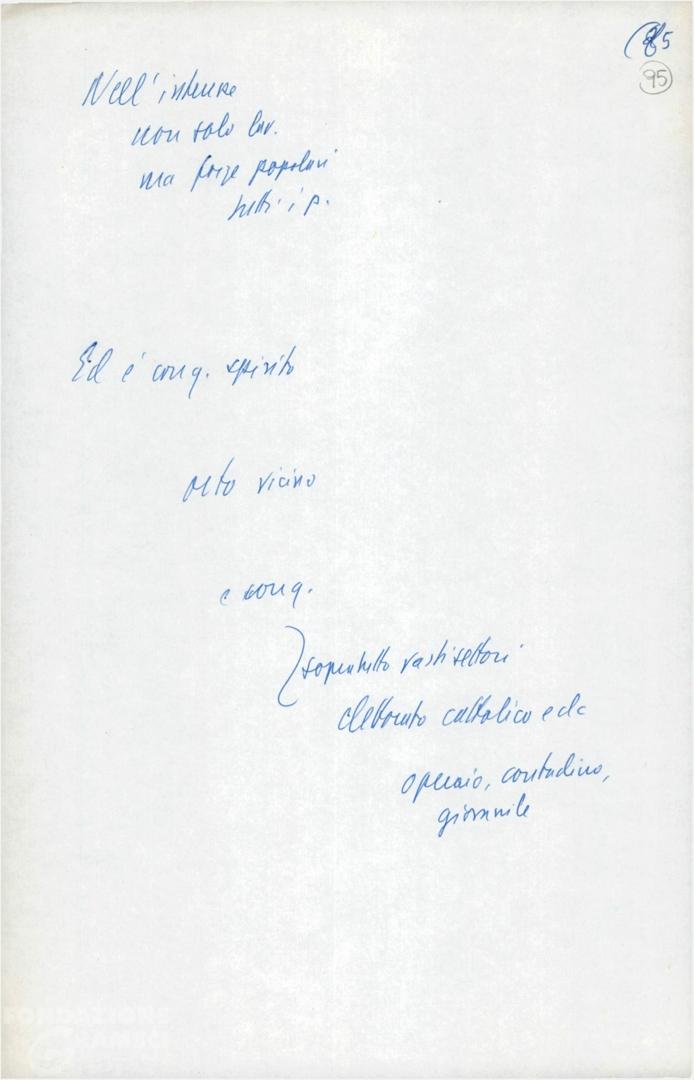 85
95
Nell'interesse
non solo lav.
ma forze popolari
tutti i p.
Ed è con q. spirito
molto vicino
e con q.
soprattutto vasti settori
elettorato cattolico e dc
operaio, contadino,
giovanile